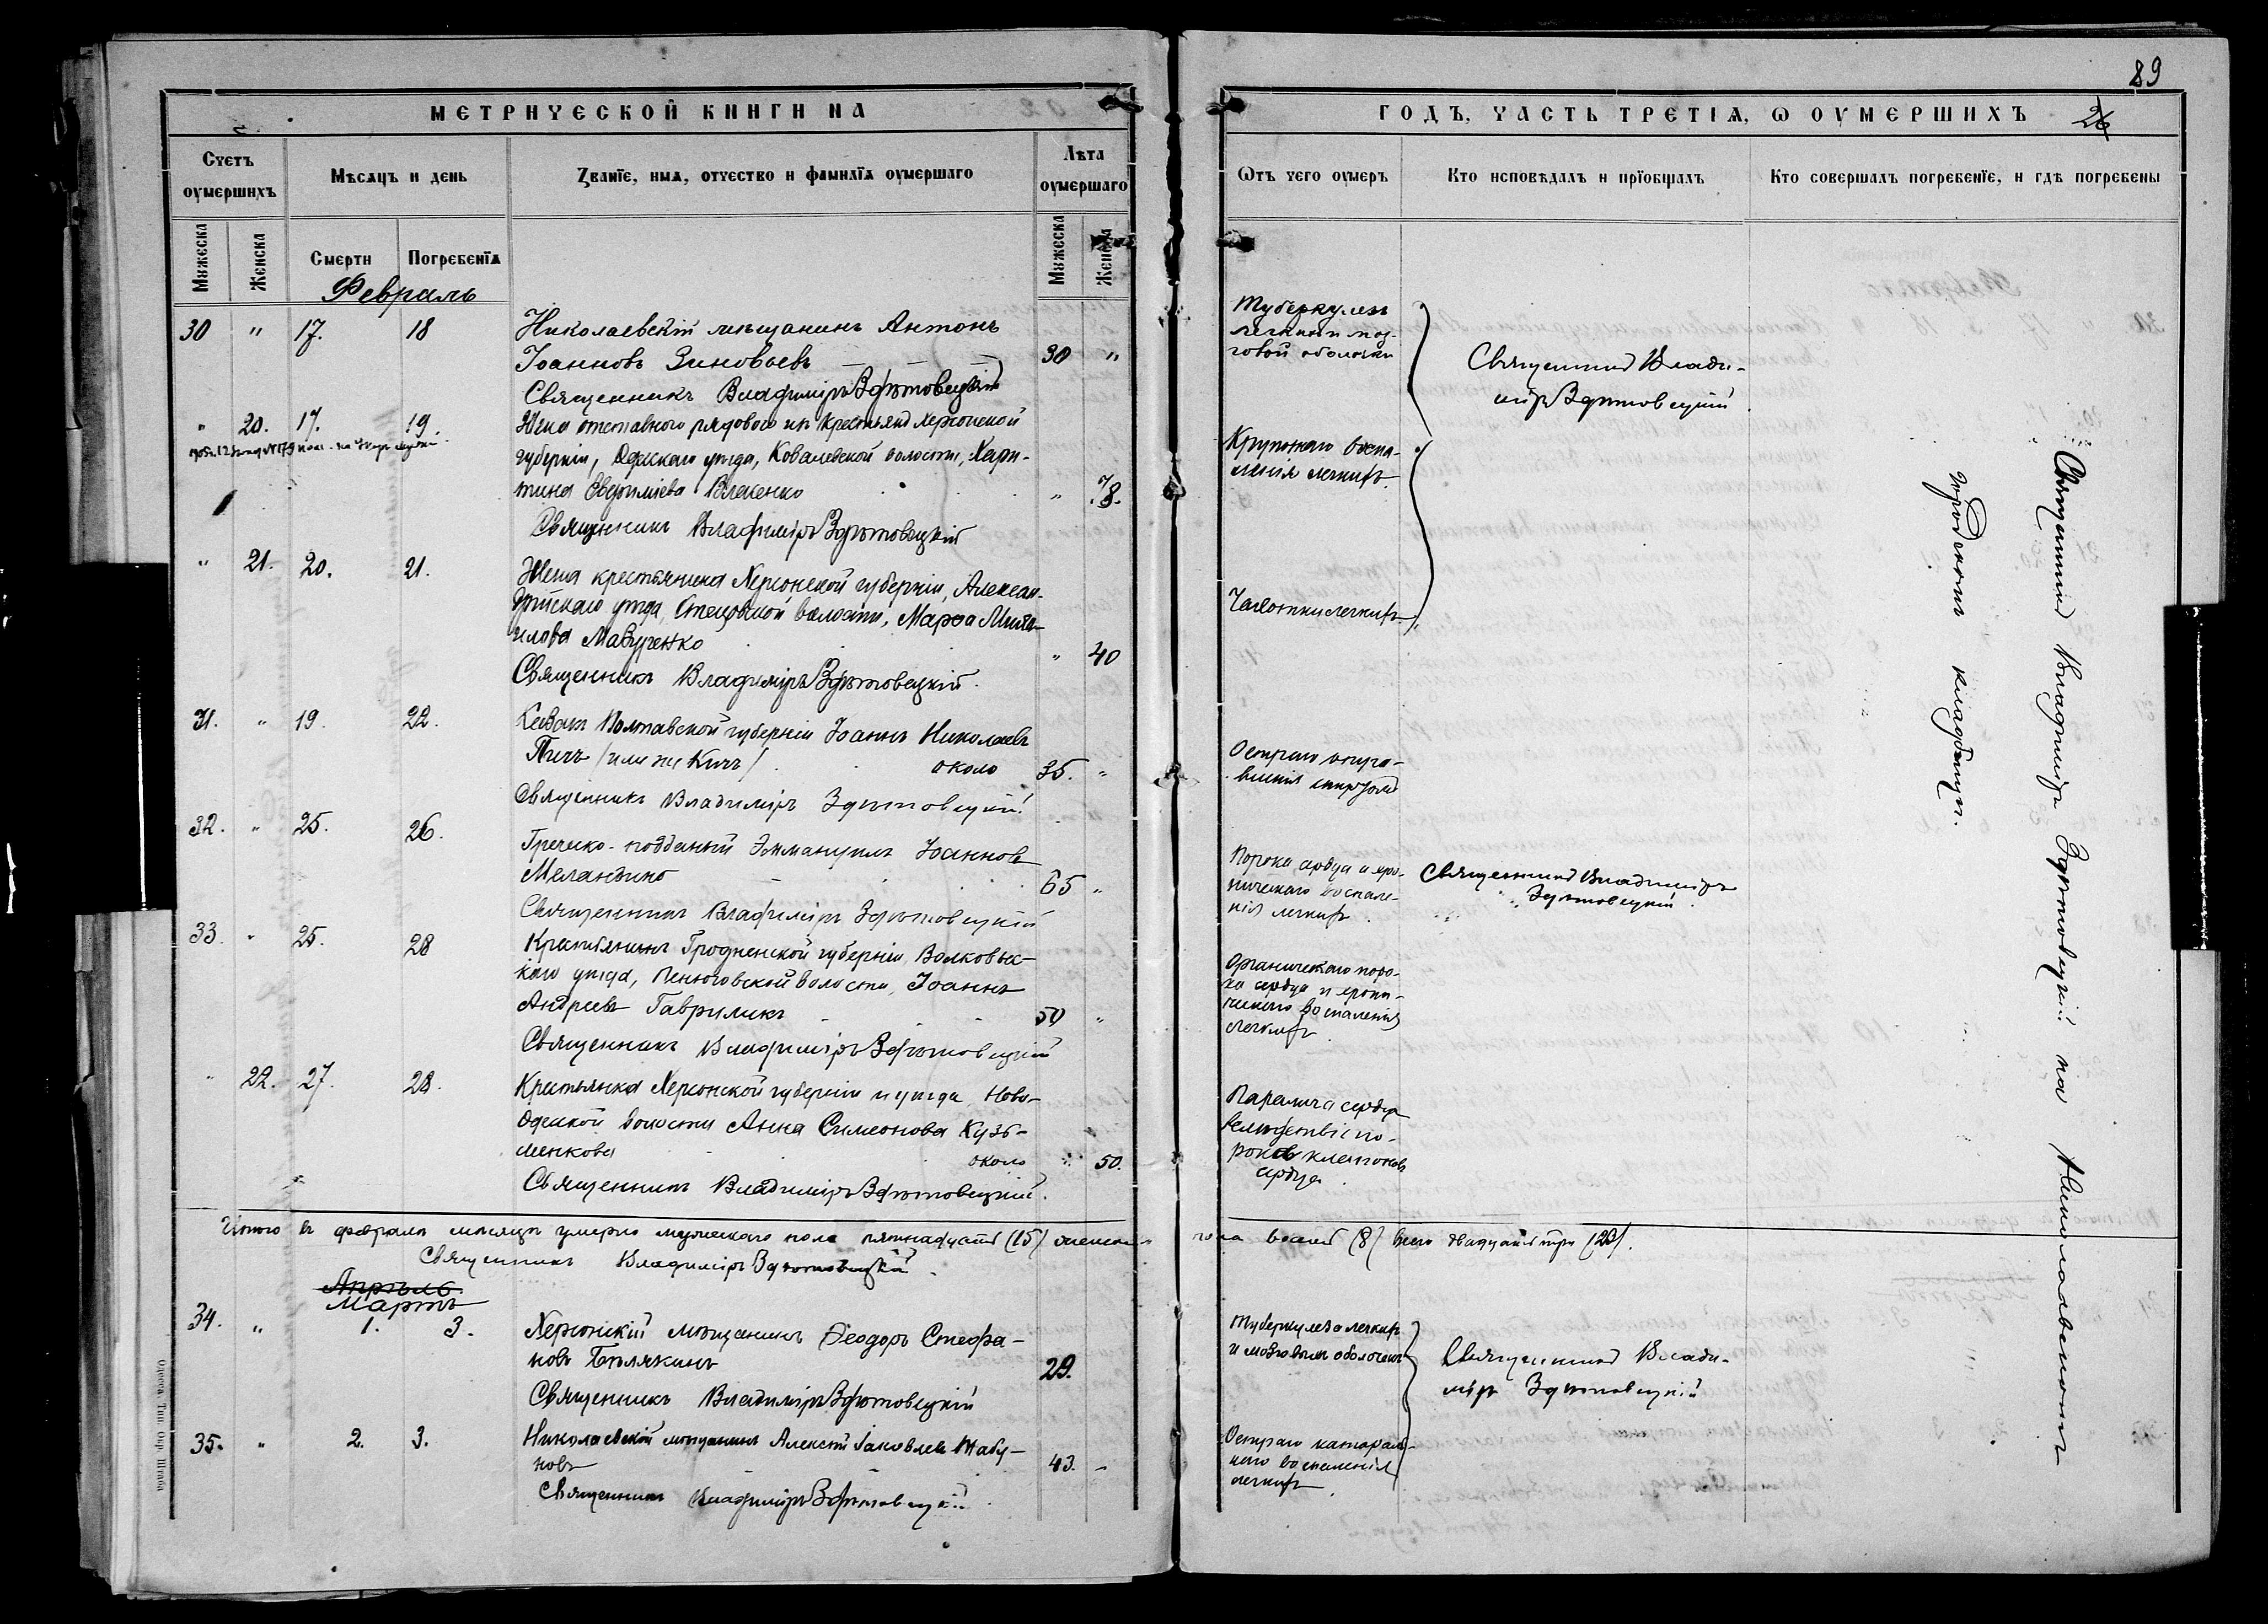 89
МЕТРИЧЕСКОЙ КНИГИ НА
ГОДЪ, ЧАСТЬ ТРЕТІЯ, Ѡ ОУМЕРШИХЪ
26
Счетъ оумершихъ
Мѣсяцъ и день
Званїе, имя, отчество и фамилїя оумершаго
Лѣта оумершаго
Ѿтъ чего оумеръ
Кто исповѣдалъ и прїобщалъ
Кто совершалъ погребенїе, и гдѣ погребены
Мужеска
Женска
Смерти
Погребенїя
Мужеска
Женска
Февраль
30 " 17. 18
Николаевскій мѣщанинъ Антонъ
Іоанновъ Зиновьевъ 30 "
Священникъ Владиміръ Здѣтовецкій
Туберкулезъ
легкихъ и моз-
говой оболочки
Священникъ Влади-
міръ Здѣтовецкій
" 20. 17. 19.
Жена отставного рядового изъ крестьянъ Херсонской
губерніи, Одесскаго уѣзда, Ковалевской волости, Хари-
тина Евфиміева Власенко " 78.
Священникъ Владиміръ Здѣтовецкій
Крупознаго воспа-
ленія легкихъ
" 21. 20. 21.
Жена крестьянина Херсонской губерніи, Алексан-
дрійскаго уѣзда, Стецовской волости, Марѳа Михаи-
лова Мазуренко " 40
Священникъ Владиміръ Здѣтовецкій.
Чахотки легкихъ
31. " 19. 22.
Козакъ Полтавской губерніи Іоаннъ Николаевъ
Пичъ (или же Кичъ) около 35. "
Священникъ Владиміръ Здѣтовецкій
Остраго отра-
вленія спиртомъ
32. " 25. 26.
Греческо-подданый Эммануилъ Іоанновъ
Меландино 65 "
Священникъ Владиміръ Здѣтовецкій
Порока сердца и хро-
ническаго воспале-
нія легкихъ
Священникъ Владиміръ
Здѣтовецкій
33. " 25. 28
Крестьянинъ Гродненской губерніи, Волковыс-
каго уѣзда, Пенюговской волости, Іоаннъ
Андреевъ Гавриликъ 50 "
Священникъ Владиміръ Здѣтовецкій
Органическаго поро-
ка сердца и хрони-
ческаго воспаленія
легкихъ
" 22. 27. 28.
Крестьянка Херсонской губерніи и уѣзда, Ново-
Одесской волости Анна Симеонова Кузь-
менкова около " 50.
Священникъ Владиміръ Здѣтовецкій.
Паралича сердца
вслѣдствіе по-
роковъ клапановъ
сердца
Итого въ февралѣ мѣсяцѣ умерло мужескаго пола пятнадцать (15) женска- го пола восемь (8) всего двадцать три (23).
Священникъ Владиміръ Здѣтовецкій.
Апрѣль
Мартъ
34. " 1. 3.
Херсонскій мѣщанинъ Ѳеодоръ Стефа-
новъ Бѣлякинъ 29.
Священникъ Владиміръ Здѣтовецкій
Туберкулеза легкихъ
и мозговыхъ оболочекъ
Священникъ Влади-
міръ Здѣтовецкій
35. " 2. 3.
Николаевской мѣщанинъ Алексій Іаковлевъ Табу-
новъ 43. "
Священникъ Владиміръ Здѣтовецкій
Остраго катараль-
наго воспаленія
легкихъ.
Священникъ Владиміръ Здѣтовецкій на Николаевскомъ
городскомъ кладбищѣ.
Одесса. Тип. Окр. Штаба